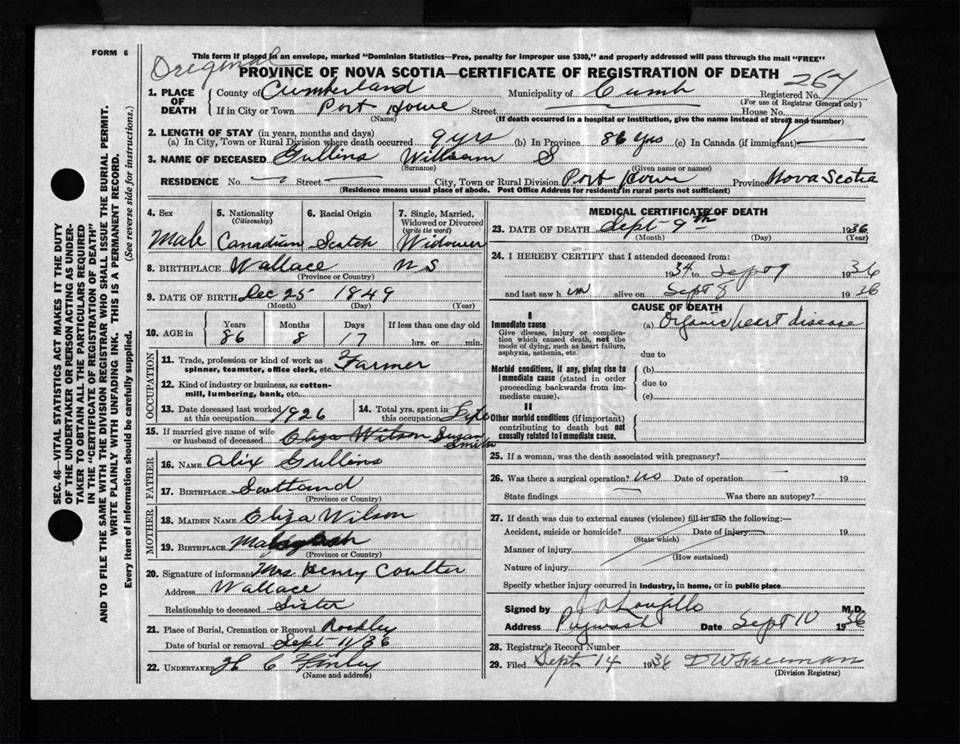 FORM 6
This form if placed in an envelope, marked "Dominion Statistics—Free, penalty for improper use $300," and properly addressed will pass through the mail "FREE"
Original
PROVINCE OF NOVA SCOTIA—CERTIFICATE OF REGISTRATION OF DEATH
267
1. PLACE OF DEATH County of Cumberland Municipality of Cumb Registered No.
(For use of Registrar General only)
If in City or Town Port Howe Street House No.
(Name) (If death occurred in a hospital or institution, give the name instead of street and number)
2. LENGTH OF STAY (in years, months and days)
(a) In City, Town or Rural Division where death occurred 9 yrs (b) In Province 86 yrs (c) In Canada (if immigrant)
3. NAME OF DECEASED Gullins William S
(Surname) (Given name or names)
RESIDENCE No. Street City, Town or Rural Division Port Howe Province Nova Scotia
(Residence means usual place of abode. Post Office Address for residents in rural parts not sufficient)
4. Sex Male
5. Nationality (Citizenship) Canadian
6. Racial Origin Scotch
7. Single, Married, Widowed or Divorced (write the word) Widower
8. BIRTHPLACE Wallace N S
(Province or Country)
9. DATE OF BIRTH Dec 25 1849
(Month) (Day) (Year)
10. AGE in Years 86 Months 8 Days 17 If less than one day old
hrs. or min.
OCCUPATION
11. Trade, profession or kind of work as spinner, teamster, office clerk, etc. Farmer
12. Kind of industry or business, as cotton-mill, lumbering, bank, etc.
13. Date deceased last worked at this occupation 1926
14. Total yrs. spent in this occupation
15. If married give name of wife or husband of deceased Eliza Wilson Susan Smith
FATHER
16. NAME Alix Gullins
17. BIRTHPLACE Scotland
(Province or Country)
MOTHER
18. MAIDEN NAME Eliza Wilson
19. BIRTHPLACE
(Province or Country)
20. Signature of informant Mrs Henry Coulter
Address Wallace
Relationship to deceased Sister
21. Place of Burial, Cremation or Removal Rockley
Date of burial or removal Sept 11/36
22. UNDERTAKER H C Finley
(Name and address)
MEDICAL CERTIFICATE OF DEATH
23. DATE OF DEATH Sept 9th 1936
(Month) (Day) (Year)
24. I HEREBY CERTIFY that I attended deceased from:
1934 to Sept 9 1936
and last saw him alive on Sept 8 1936
CAUSE OF DEATH
I
Immediate cause
Give disease, injury or complication which caused death, not the mode of dying, such as heart failure, asphyxia, asthenia, etc.
(a) Organic heart disease
due to
Morbid conditions, if any, giving rise to immediate cause (stated in order proceeding backwards from immediate cause).
(b)
due to
(c)
II
Other morbid conditions (if important) contributing to death but not causally related to immediate cause.
25. If a woman, was the death associated with pregnancy?
26. Was there a surgical operation? no Date of operation 19
State findings Was there an autopsy?
27. If death was due to external causes (violence) fill in also the following:—
Accident, suicide or homicide? Date of injury 19
(State which)
Manner of injury
(How sustained)
Nature of injury
Specify whether injury occurred in industry, in home, or in public place
Signed by M.D.
Address Pugwash Date Sept 10 1936
28. Registrar's Record Number
29. Filed Sept 14 1936 D W Freeman
(Division Registrar)
SEC. 46—VITAL STATISTICS ACT MAKES IT THE DUTY
OF THE UNDERTAKER OR PERSON ACTING AS UNDER-
TAKER TO OBTAIN ALL THE PARTICULARS REQUIRED
IN THE "CERTIFICATE OF REGISTRATION OF DEATH"
AND TO FILE THE SAME WITH THE DIVISION REGISTRAR WHO SHALL ISSUE THE BURIAL PERMIT.
WRITE PLAINLY WITH UNFADING INK. THIS IS A PERMANENT RECORD.
Every item of information should be carefully supplied. (See reverse side for instructions.)